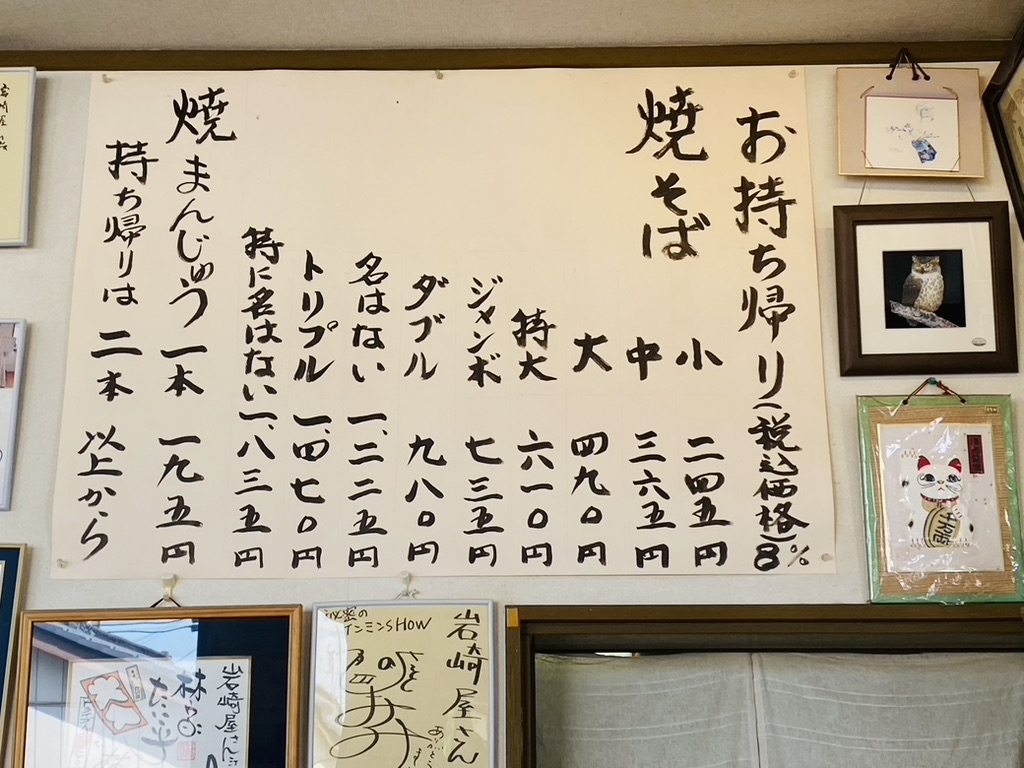 お持ち帰り(税込価格)8%
焼そば
小 二四五円
中 三六五円
大 四九〇円
特大 六一〇円
ジャンボ 七三五円
ダブル 九八〇円
名はない 一、二二五円
トリプル 一、四七〇円
特に名はない 一、八三五円
焼まんじゅう 一本 一九五円
持ち帰りは 二本 以上から
岩崎屋さん
岩崎屋さん